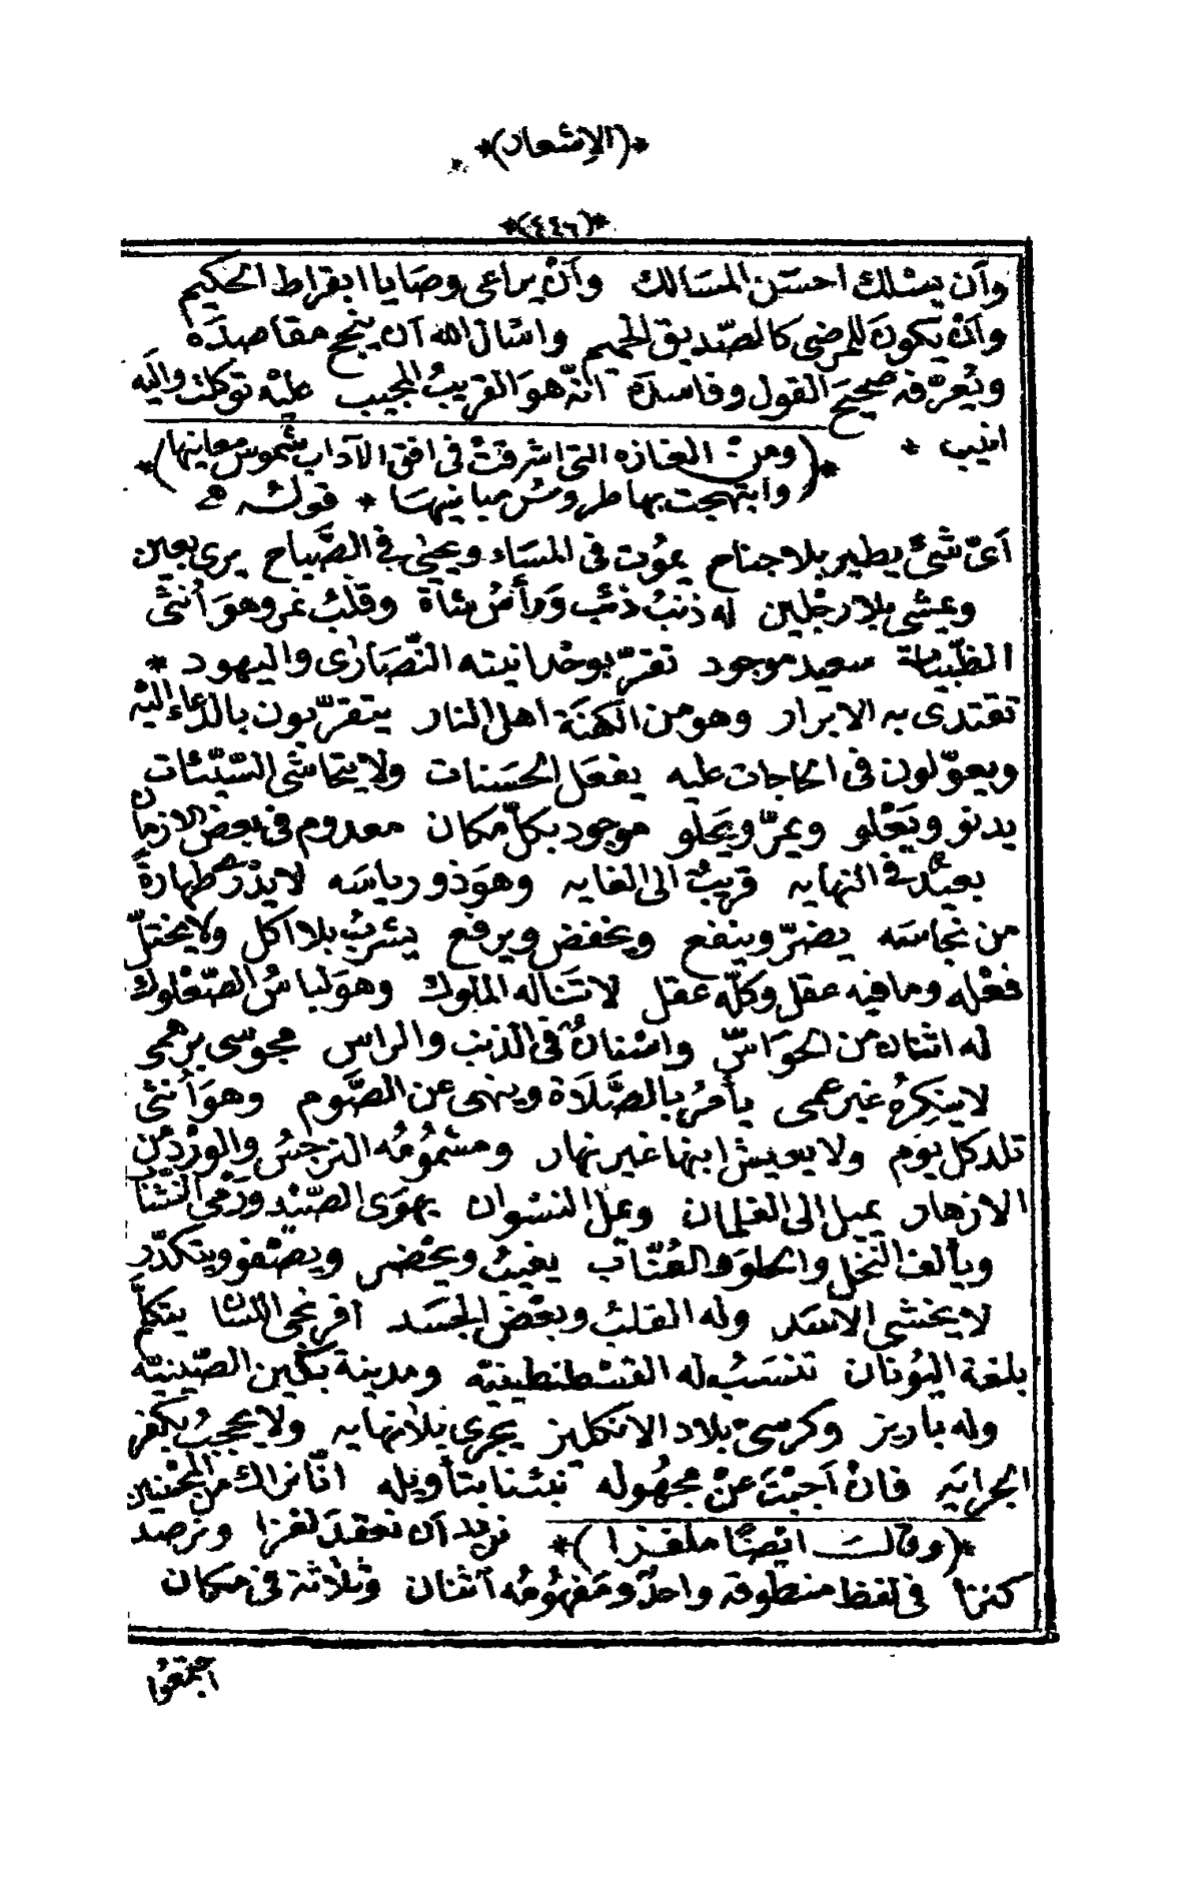 *(الإشعار)*
*(٤٤٦)*
وأن يسْلك احسَن المسَالك وأنْ يراعى وصَايا ابقراط الحكيم
وأنْ يكونَ للمرضى كالصّديق الحميم واسْال الله آن ينجح مقاصدَه
ويُعرّفه صحيحَ القول وفاسده انّه هوَ القريبُ المجيب عليْه توكلت واليَه
انيب *
*(ومنْ الغازه التى اشرقتْ فى افق الآداب شموس معاينها)*
وابتهجت بها طروش مبانيهَا * قوله
أىّ شئ يطير بلا جناح يمُوت فى المسَاء ويحيٰى فى الصَّباح يرى بعين
وعيشى بلا رجْلين له ذنبُ ذئب وَرأسُ شاة وقلبُ نمر وهوَ أنثى
الظّبياة سعيد موجود تقرّ بوحْدانيته النّصَارٰى واليهود *
تقتدى به الابرار وهو من الكهنَة اهل النار يتقرّبون بالدعاء اليْه
ويعوّلون فى الحاجات عليه يفعَل الحسَنات ولا يتحاشى السّيّئات
يدنو ويَعْلو ويمرّ ويَحلو موجود بكلّ مكان معدوم فى بعض الازمان
بعيدٌ فى النهايه قريبٌ الى الغايه وهوَ ذو رياسَه لا يدْرى طهارةً
من نجاسَه يضرّ وينفع ويخفض ويرفع يشربُ بلا اكل ولا يختلّ
فعْله وما فيه عقل وكلّه عقل لا تَناله الملوك وهوَ لباسُ الصّعْلوك
له اثنان من الحوَاسّ واسْنانٌ فى الذنب والراس مجوسى برهمى
لا ينكِرهُ غير عمى يأمُر بالصَّلَاة وينهى عن الصَّوم وهوَ أنثى
تلد كل يوْم ولا يعيش ابنها غير نهار ومشمُومُه النرجسُ والوَرْد من
الازهار يميل الى الغلمان وعلى النسْوان يهوَى الصّيْد ورَمى النشّاب
ويألف النّخل والحلوَ والعُنّاب يغيبُ ويحْضر ويصْفو ويتكدّر
لا يخشى الاسَد وله القلبُ وبعْض الجسَد افرنجى اللسَان يتكلّم
بلغة اليُونان تنسَبُ له القسْطنطينيّه ومدينة بكّين الصّينيّه
وله باريز وكرسىّ بلاد الانكليز يجرى بلا نهايه ولا يعجبُ بكفر
الجرايَه فانْ اَجبْتَ عنْ مجْهُوله نبئنا بتأويله انّا نراك من المحْسنين
*(وقالَ ايْضًا ملغزا)* نريد أن نعقدَ لغزا ونرصد
كنزا فى لفظ منطوقه واحدٌ ومَفهُومُه أثنان وثلاثة فى مكان
اجتمعُوا